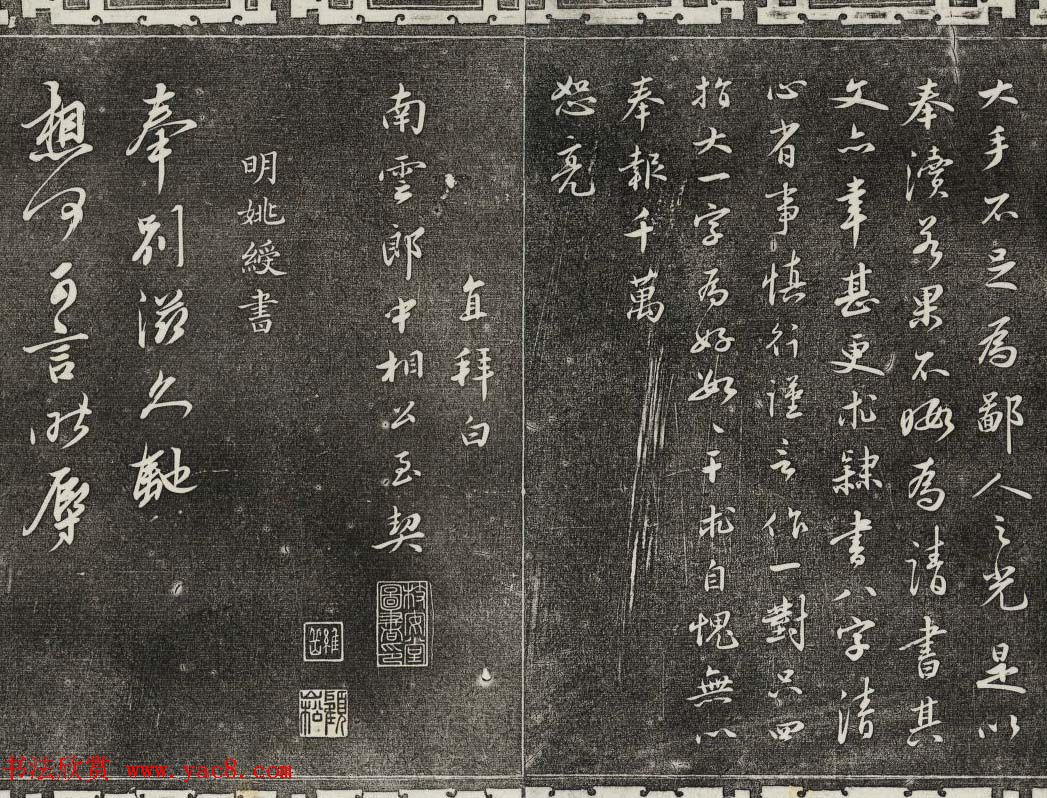 大手不足為鄙人之光是以
奉瀆若果不晦為請書其
文亦幸甚更求隸書八字清
心省事慎行謹言作一對只四
指大一字為好好、干求自愧無以
奉報千萬
恕亮
直拜白
南雲郎中相公至契
明姚綬書
奉別滋久馳
想何可言昨辱
書法欣赏 www.yac8.com